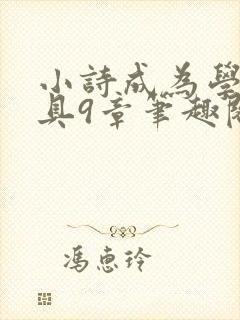 小詩成為學
具9章筆趣閣
馮惠玲